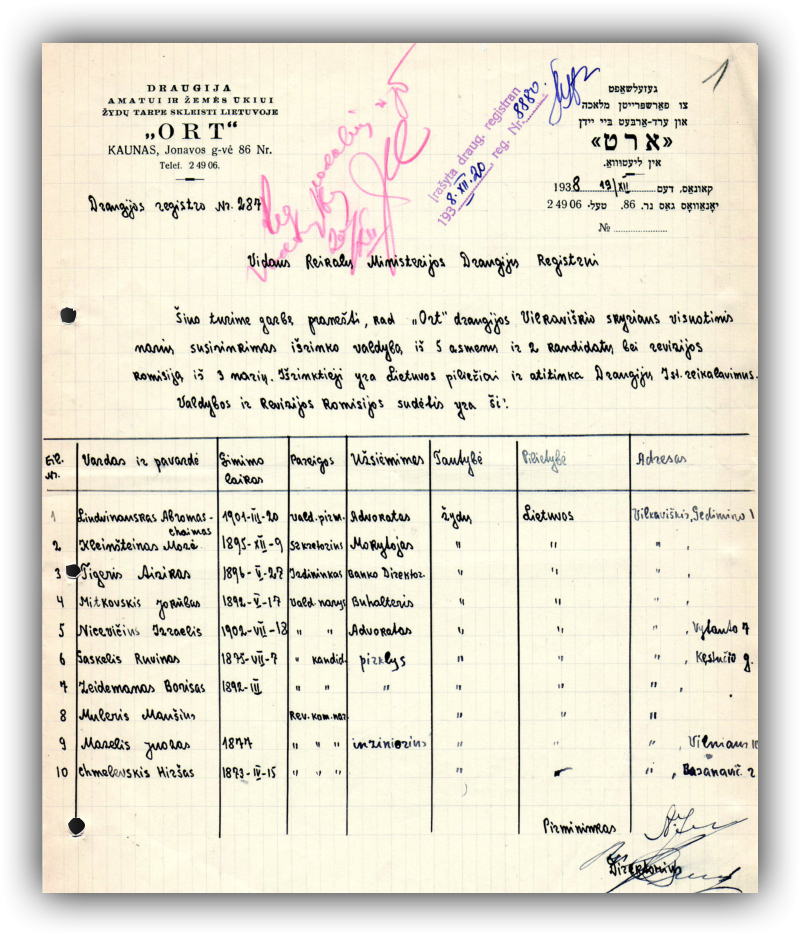 DRAUGIJA
AMATUI IR ŽEMĖS ŪKIUI
ŽYDŲ TARPE SKLEISTI LIETUVOJE
„ORT“
KAUNAS, Jonavos g-vė 86 Nr.
Telef. 2 49 06.
Draugijos registro Nr. 287
Įrašyta draug. registran
1938.XII.20 reg. Nr. 8880.
1
געזעלשאַפט
צו פאַרשפּרייטן מלאכה
און ערד-אַרבעט ביי יידן
«אָרט»
אין ליטע
1938 19/XII קאָוונאַס, דעם
יאָנאַוואָס גאַס נר. 86, טעל. 2 49 06
№
Vidaus Reikalų Ministerijos Draugijų Registrui
Šiuo turime garbę pranešti, kad „Ort“ draugijos Vilkaviškio skyriaus visuotinis
narių susirinkimas išrinko valdybą iš 5 asmenų ir 2 kandidatų bei revizijos
komisiją iš 3 narių. Išrinktieji yra Lietuvos piliečiai ir atitinka Draugijų Įst. reikalavimus.
Valdybos ir Revizijos Komisijos sudėtis yra ši:
Eil. Nr. Vardas ir pavardė Gimimo laikas Pareigos Užsiėmimas Tautybė Pilietybė Adresas
1 Lindvinauskas Abromas-chaimas 1901-III-20 Vald. pirm. Advokatas žydų Lietuvos Vilkaviškis, Gedimino 1
2 Kleinšteinas Mozė 1895-XII-9 Sekretorius Mokytojas " " " ,
3 Tigeris Aizikas 1896-V-27 Iždininkas Banko Direktor. " " " ,
4 Mitkovskis Jokūbas 1892-V-17 Vald narys Buhalteris " " " ,
5 Nicevičius Izraelis 1902-VII-18 " " Advokatas " " " , Vytauto 7
6 Šaskolis Ruvinas 1875-VII-7 " kandid. pirklys " " " , Kęstučio g.
7 Zeidemanas Borisas 1892-III " " " " " " ,
8 Muleris Maušius Rev. kom. nar. " " "
9 Mazelis Judas 1877 " " " inžinierius " " " , Vilniaus 10
10 Chmelevskis Hiršas 1873-IV-15 " " " " " " , Basanavič. 2
Pirmininkas
Direktorius